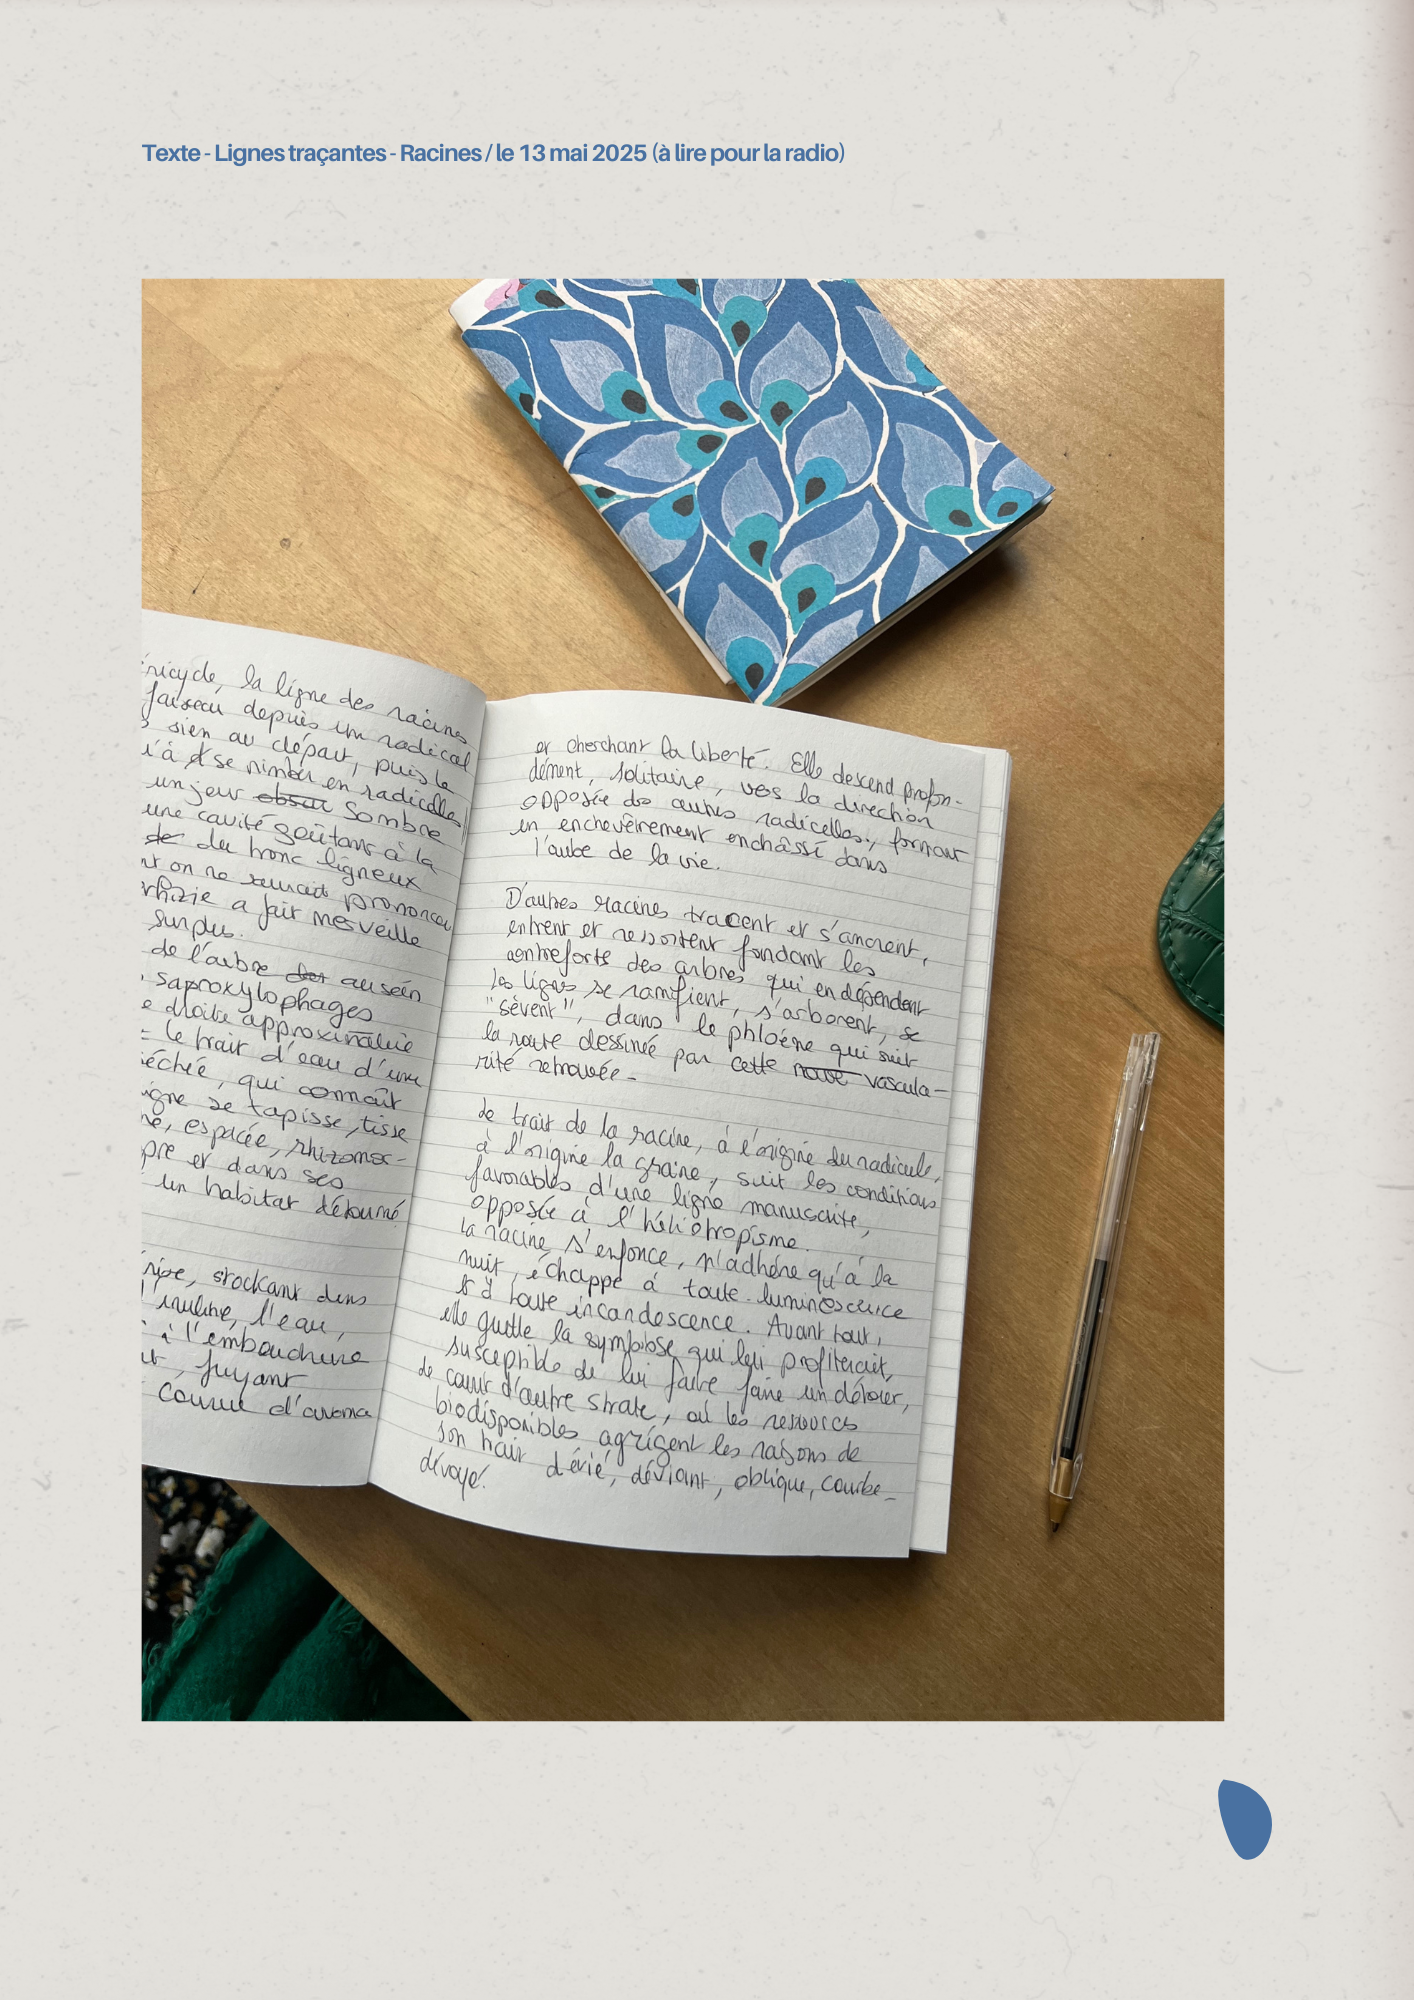 Texte - Lignes traçantes - Racines / le 13 mai 2025 (à lire pour la radio)
éricycle, la ligne des racines
faisceau depuis un radical
sien au départ, puis le
à se nimber en radicelles
un jour obscur sombre
une cavité goûtant à la
de du tronc ligneux
on ne saurait prononcer
rhizie a fait merveille
surplus.
de l'arbre des au sein
saproxylophages
droite approximative
= le trait d'eau d'une
échée, qui connaît
igne se tapisse, tisse
espacée, rhizomac-
pre et dans ses
un habitat détourné
stockant dans
l'inuline, l'eau,
à l'embouchure
fuyant
comme d'aroma
et cherchant la liberté. Elle descend profon-
dément, solitaire, vers la direction
opposée des autres radicelles, formant
un enchevêtrement enchâssé dans
l'aube de la vie.
D'autres racines tracent et s'ancrent,
entrent et ressortent fondant les
contreforts des arbres qui en dépendent
Les lignes se ramifient, s'arborent, se
"sèvent", dans le phloème qui suit
la route dessinée par cette nouve vascula-
rité retrouvée -
Le trait de la racine, à l'origine du radicule,
à l'origine la graine, suit les conditions
favorables d'une ligne manuscrite,
opposée à l'héliotropisme.
La racine s'enfonce, n'adhère qu'à la
nuit, échappe à toute luminescence
et à toute incandescence. Avant tout,
elle guette la symbiose qui lui profiterait,
susceptible de lui faire faire un détour,
de cœur d'autre strate, où les ressources
biodisponibles agrègent les raisons de
son trait dévié, déviant, oblique, courbe-
dévoyé.